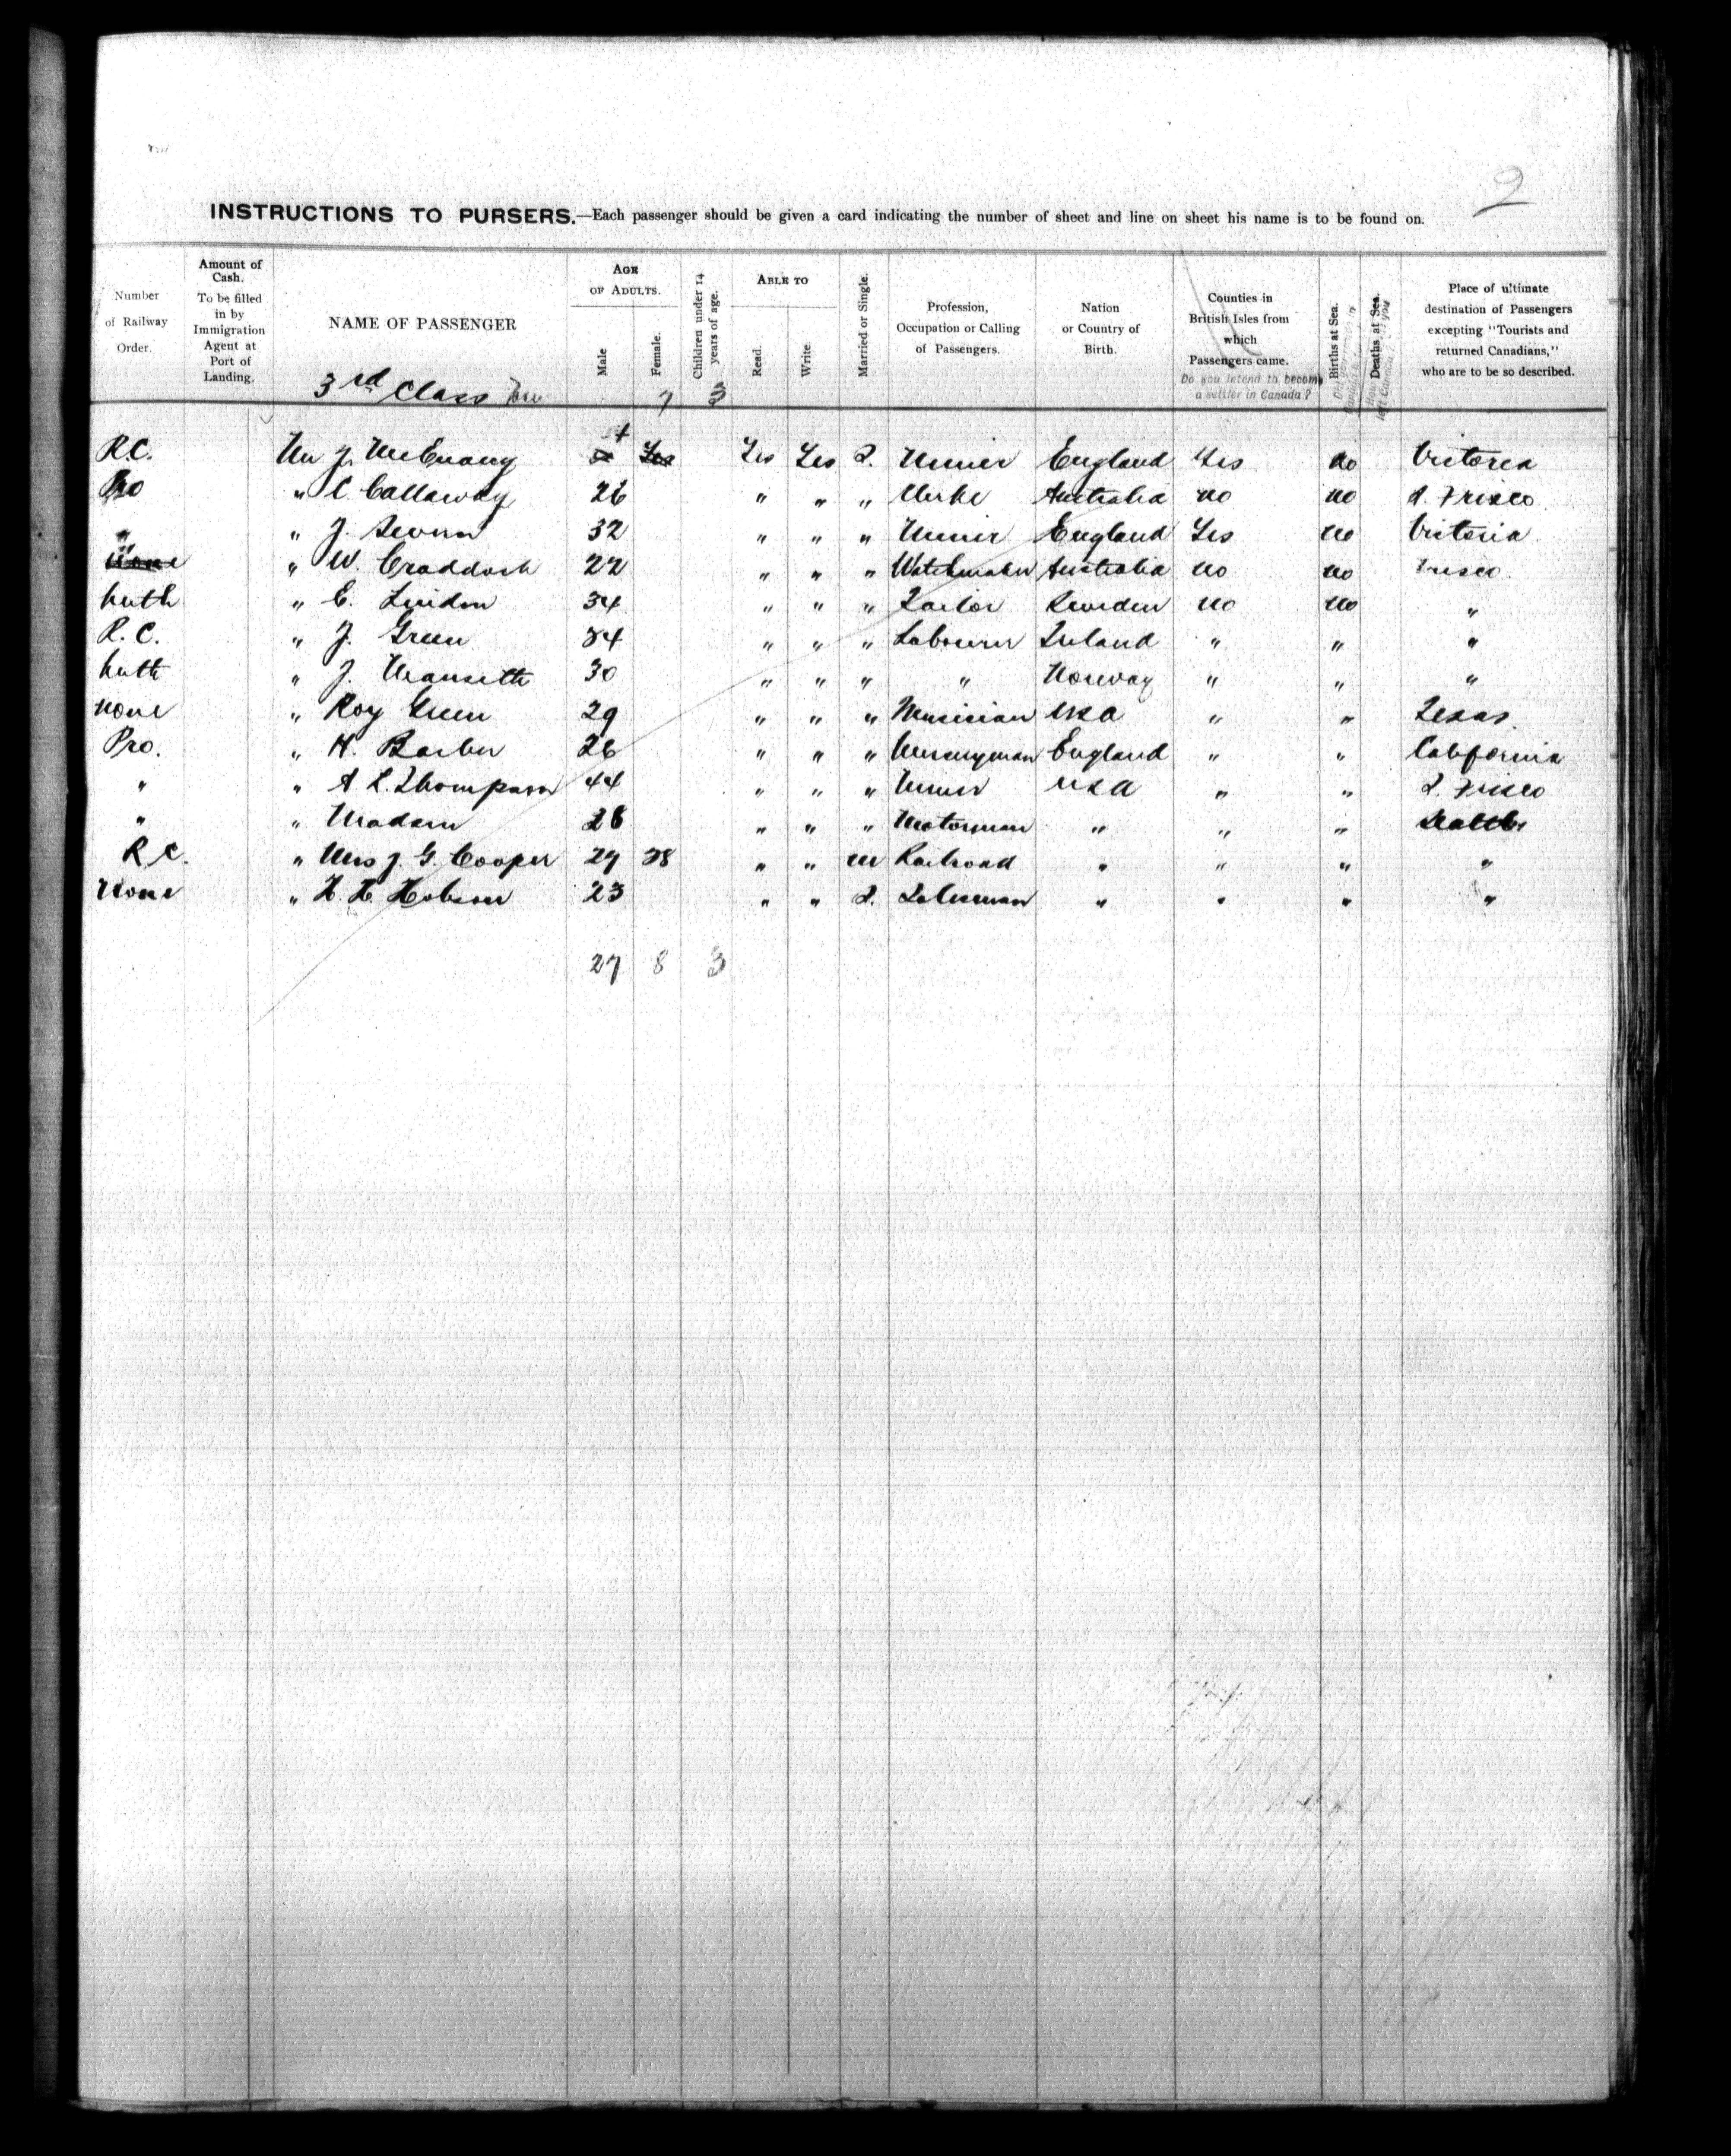 2
INSTRUCTIONS TO PURSERS.—Each passenger should be given a card indicating the number of sheet and line on sheet his name is to be found on.
Number of Railway Order.
Amount of Cash. To be filled in by Immigration Agent at Port of Landing.
NAME OF PASSENGER
AGE OF ADULTS.
Male
Female.
Children under 14 years of age.
ABLE TO
Read.
Write.
Married or Single.
Profession, Occupation or Calling of Passengers.
Nation or Country of Birth.
Counties in British Isles from which Passengers came.
Do you intend to become a settler in Canada?
Births at Sea.
Deaths at Sea.
Place of ultimate destination of Passengers excepting "Tourists and returned Canadians," who are to be so described.
3rd Class 7 3
R.C. Mr J. McEnany Yes Yes S. Miner England Yes no Victoria
Pro " C. Callaway 26 " " " Clerk Australia no no S. Frisco
" " J. Severn 32 " " " Miner England Yes no Victoria
" " W. Craddock 22 " " " Watchmaker Australia no no Frisco.
Luth " C. Lindon 34 " " " Tailor Sweden no no "
R.C. " J. Green 34 " " " Labourer Ireland " " "
Luth " J. Manseth 30 " " " " Norway " " "
none " Roy Green 29 " " " Musician USA " " Texas.
Pro. " H. Barber 26 " " " Nurseryman England " " California
" " A L. Thompson 44 " " " Miner USA " " S. Frisco
" " Madam 28 " " " Motorman " " " Seattle
R.C. " Mrs J. G. Cooper 27 28 " " M Railroad " " " "
None " H. H. Hobson 23 " " S. Salesman " " " "
27 8 3